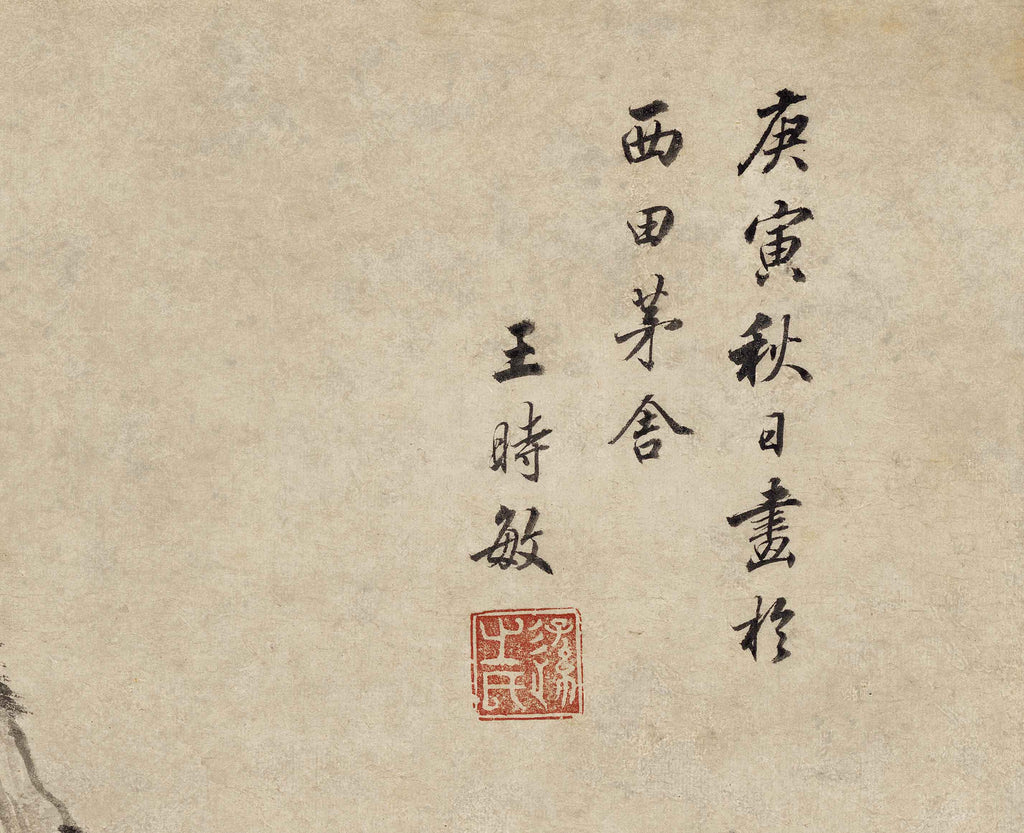 庚寅秋日畫於
西田茅舍
王時敏